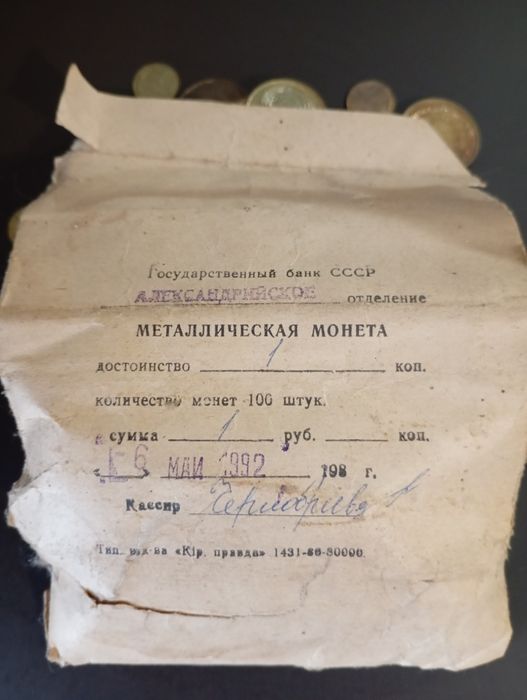 Государственный банк СССР
АЛЕКСАНДРИЙСКОЕ отделение
МЕТАЛЛИЧЕСКАЯ МОНЕТА
достоинство 1 коп.
количество монет 100 штук.
сумма 1 руб. коп.
6 МАИ 1992 198 г.
Кассир
Тип. изд-ва «Кір. правда» 1431-86-30000